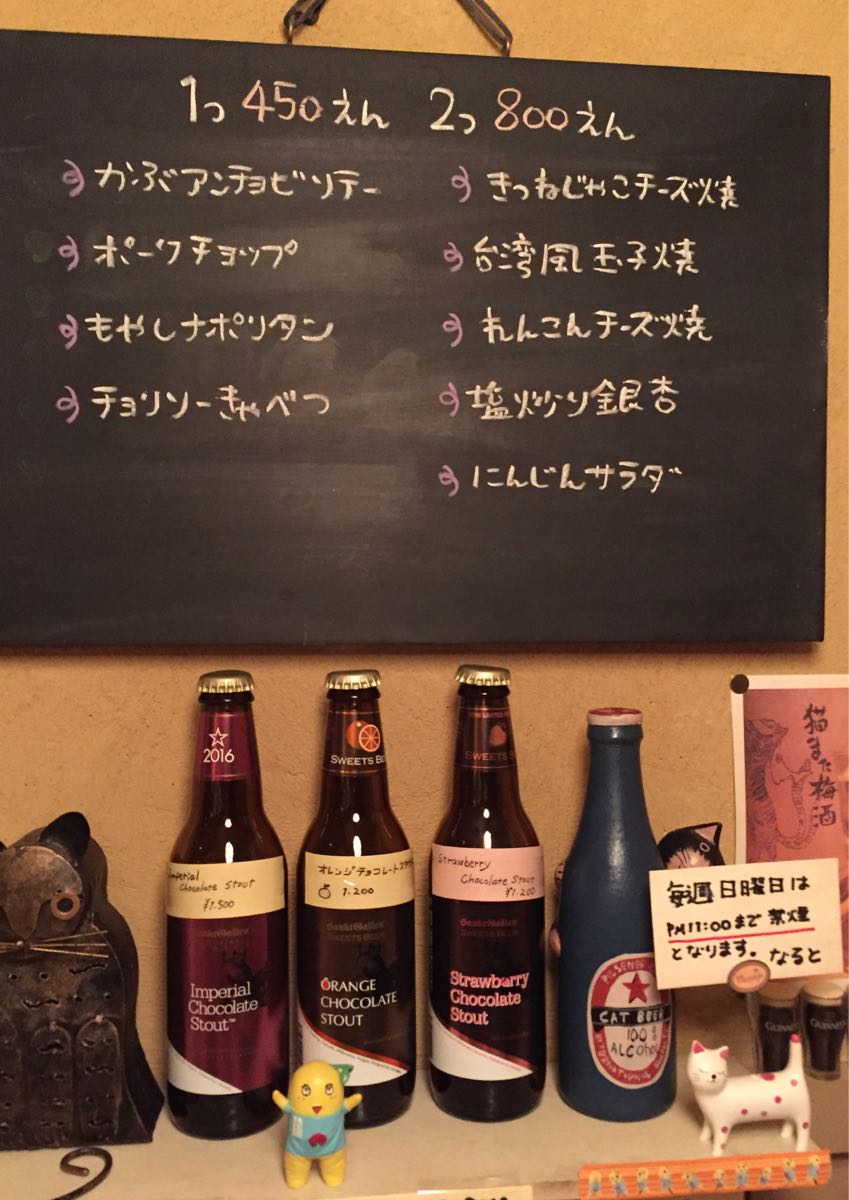 1つ 450えん 2つ 800えん
かぶアンチョビソテー
ポークチョップ
もやしナポリタン
チョリソーきゃべつ
きつねじゃこチーズ焼
台湾風玉子焼
れんこんチーズ焼
塩炒り銀杏
にんじんサラダ
2016
Imperial
Chocolate Stout
¥1.500
SanktGallen
Imperial
Chocolate
Stout™
SWEETS
オレンジチョコレートスタウ
1.200
SanktGallen
SWEETS BEER
ORANGE
CHOCOLATE
STOUT
SWEETS
Strawberry
Chocolate Stout
¥1.200
SanktGallen
SWEETS BEER
Strawberry
Chocolate
Stout
CAT BEER
100%
ALCOHOL
猫また梅酒
毎週日曜日は
PM11:00まで禁煙
となります。なると
GUINNESS
GUINNESS